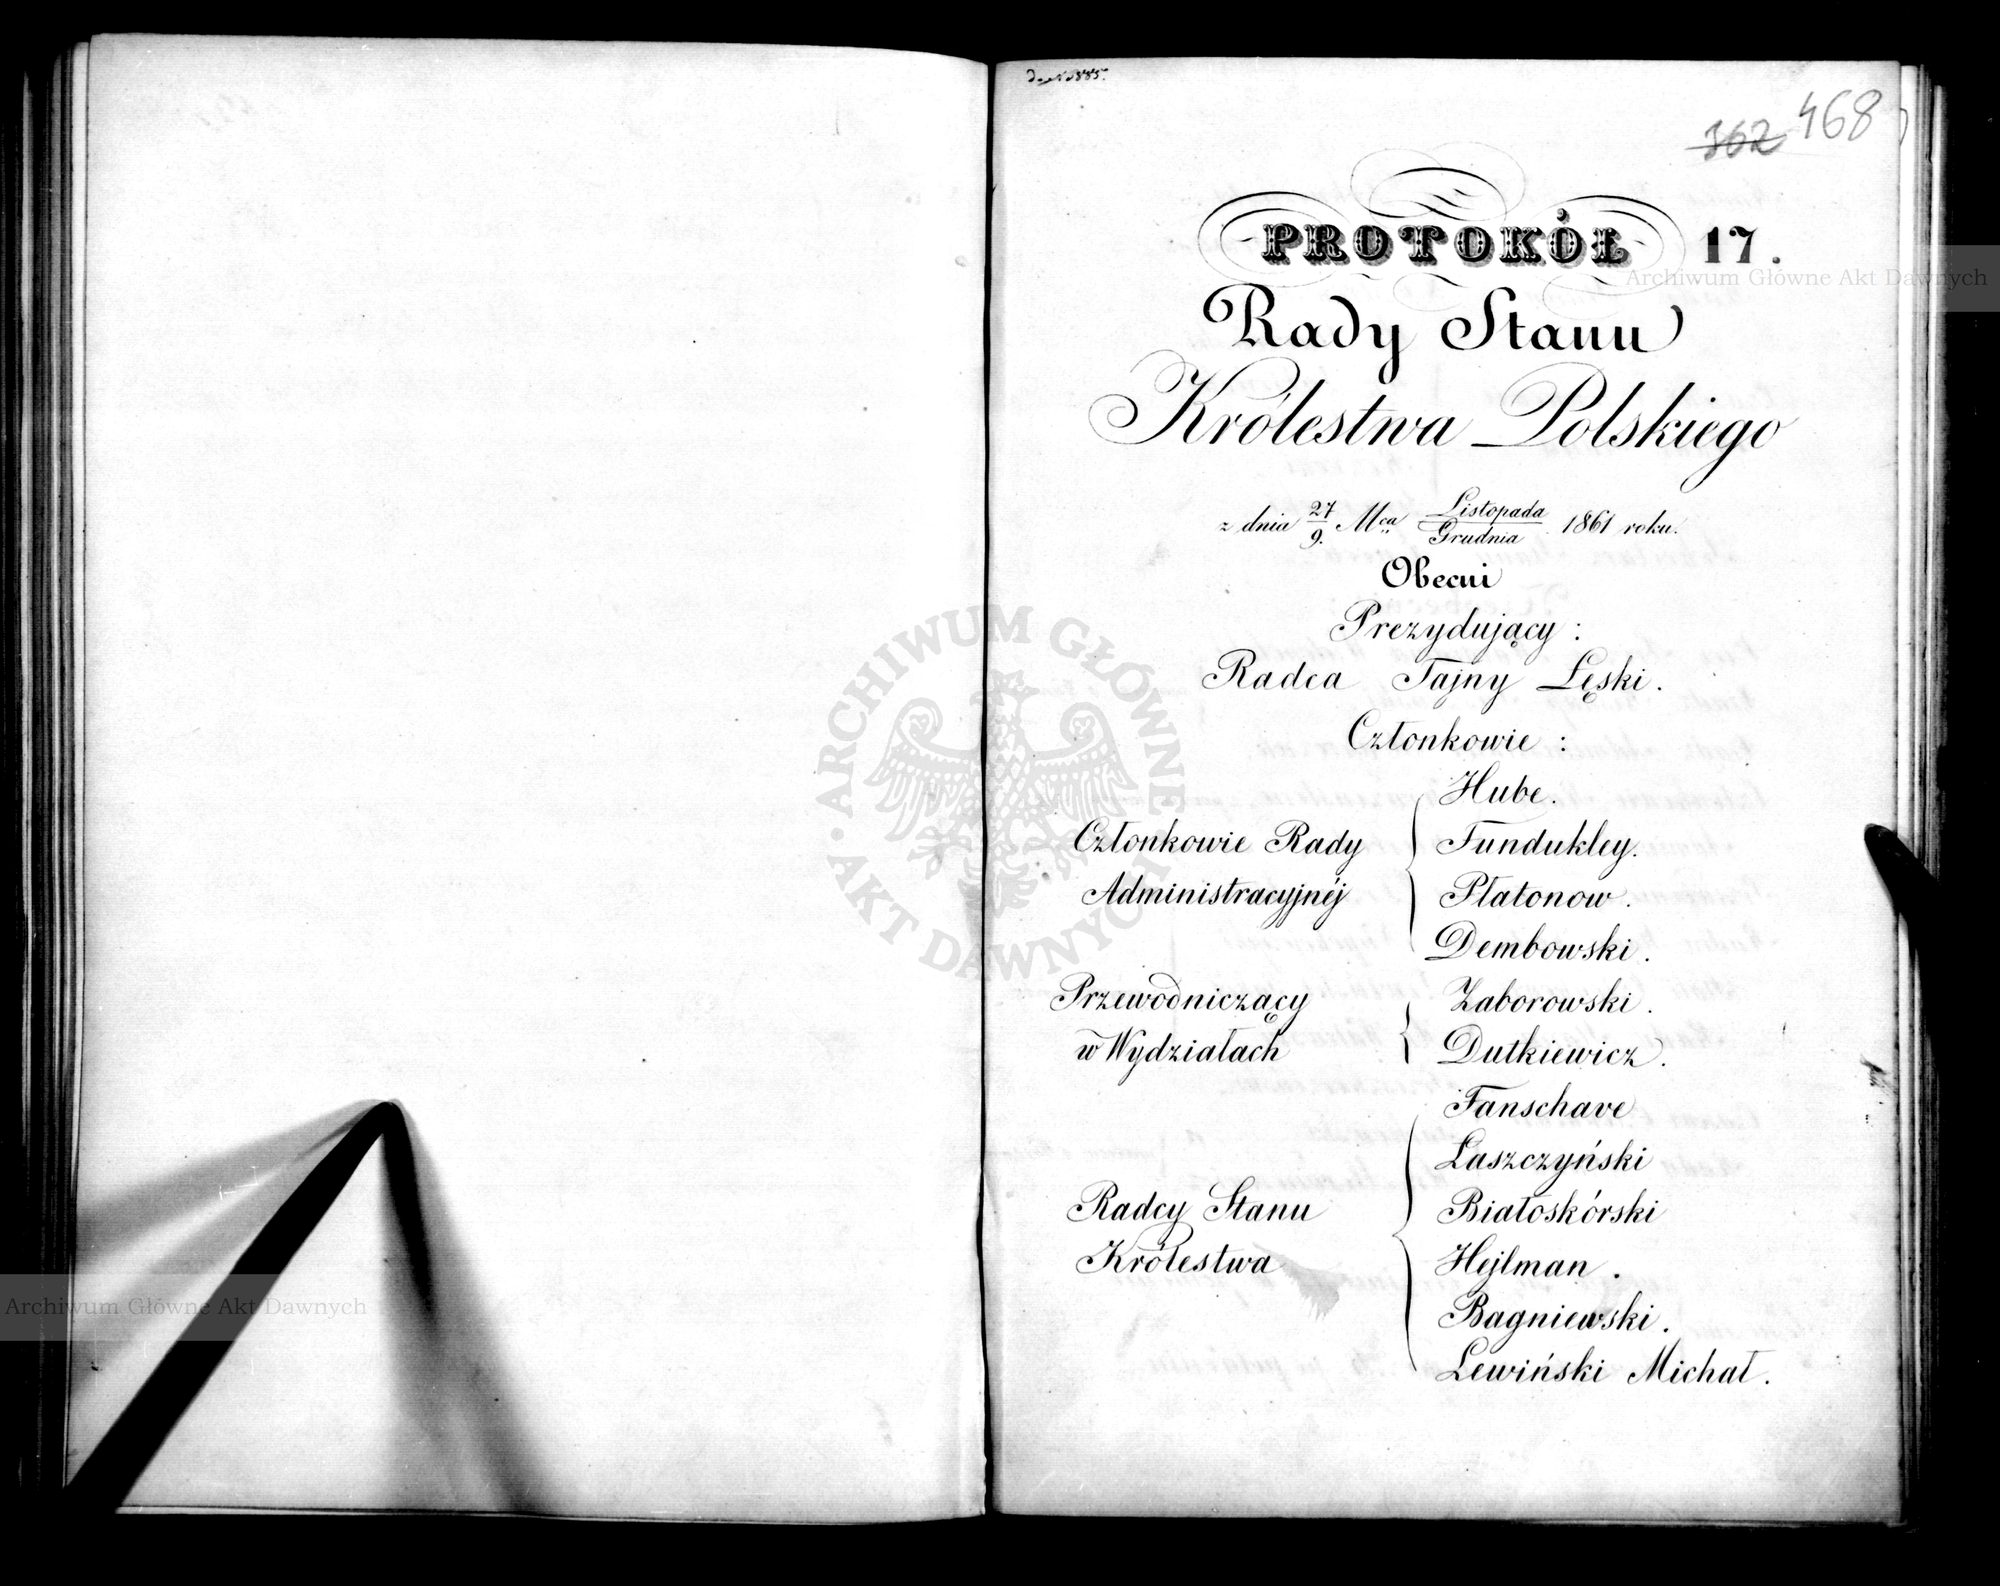 362 468
PROTOKÓŁ 17.
Rady Stanu
Królestwa Polskiego
z dnia 27/9. Mca Listopada/Grudnia 1861 roku.
Obecni
Prezydujący :
Radca Tajny Łęski.
Członkowie :
Członkowie Rady Administracyjnéj
Hube.
Fundukley.
Płatonow.
Dembowski.
Przewodniczący w Wydziałach
Zaborowski.
Dutkiewicz.
Radcy Stanu Królestwa
Fanschave
Łaszczyński
Białoskórski
Hejlman.
Bagniewski.
Lewiński Michał.
Archiwum Główne Akt Dawnych
ARCHIWUM GŁÓWNE AKT DAWNYCH
Archiwum Główne Akt Dawnych